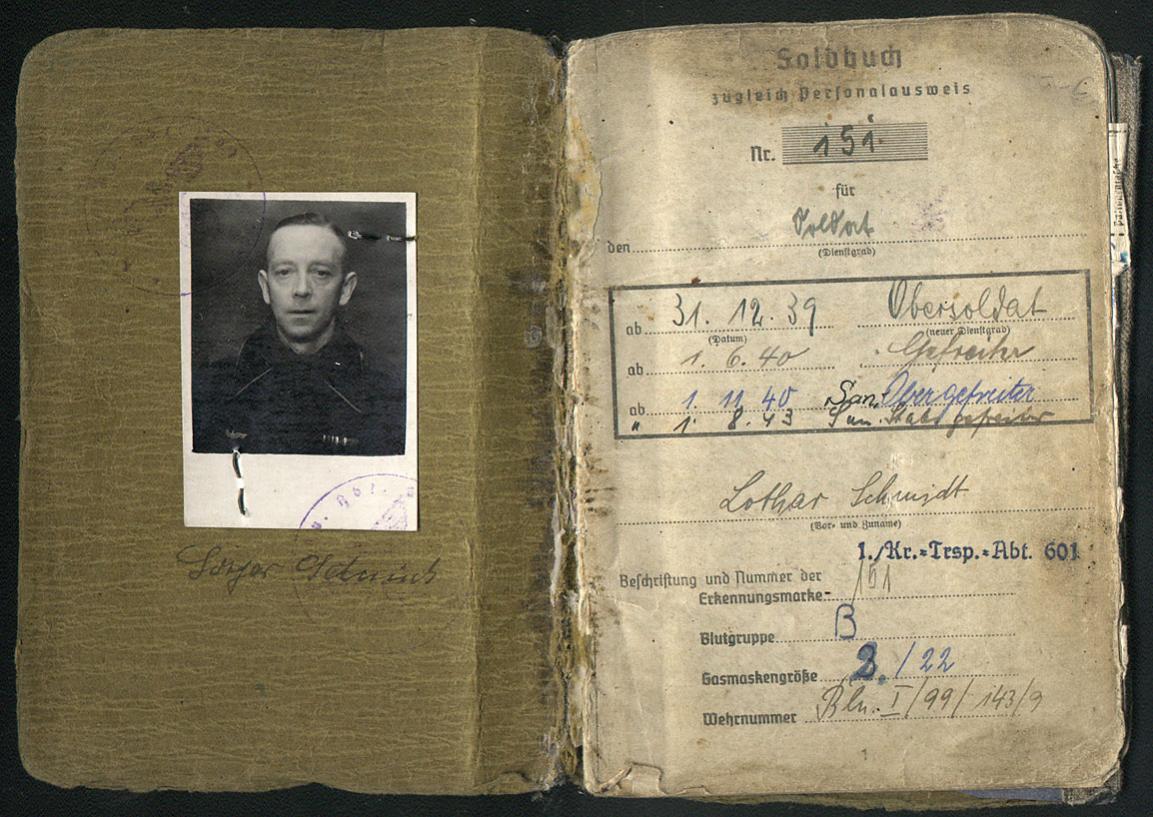 Lothar Schmidt
Soldbuch
zugleich Personalausweis
Nr. 151
für
den Soldat
(Dienstgrad)
ab 31. 12. 39 Obersoldat
(Datum) (neuer Dienstgrad)
ab 1. 6. 40 Gefreiter
ab 1. 11. 40 San. Obergefreiter
" 1. 8. 43 San. Stabsgefreiter
Lothar Schmidt
(Vor- und Zuname)
1./Kr.=Trsp.=Abt. 601
Beschriftung und Nummer der
Erkennungsmarke 151
Blutgruppe B
Gasmaskengröße 2. / 22
Wehrnummer Bln. I/99/143/9
1